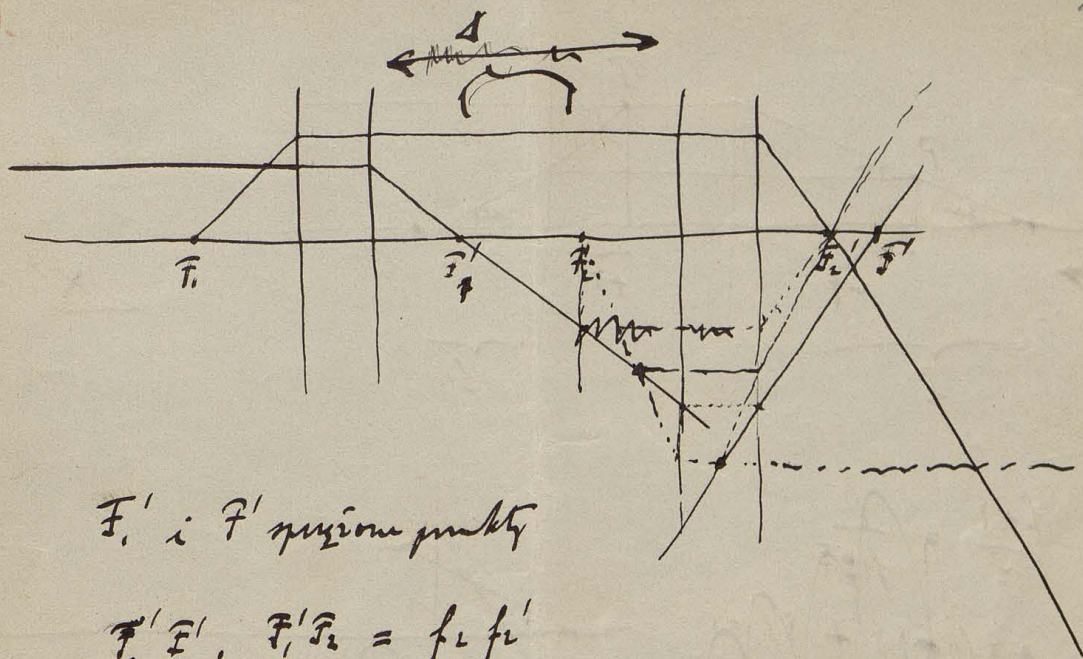 Δ
F₁ F₁' F₂ F₂' F'
F₁' i F' sprzężone punkty
F₂'F' . F₁'F₂ = f₂ f₂'